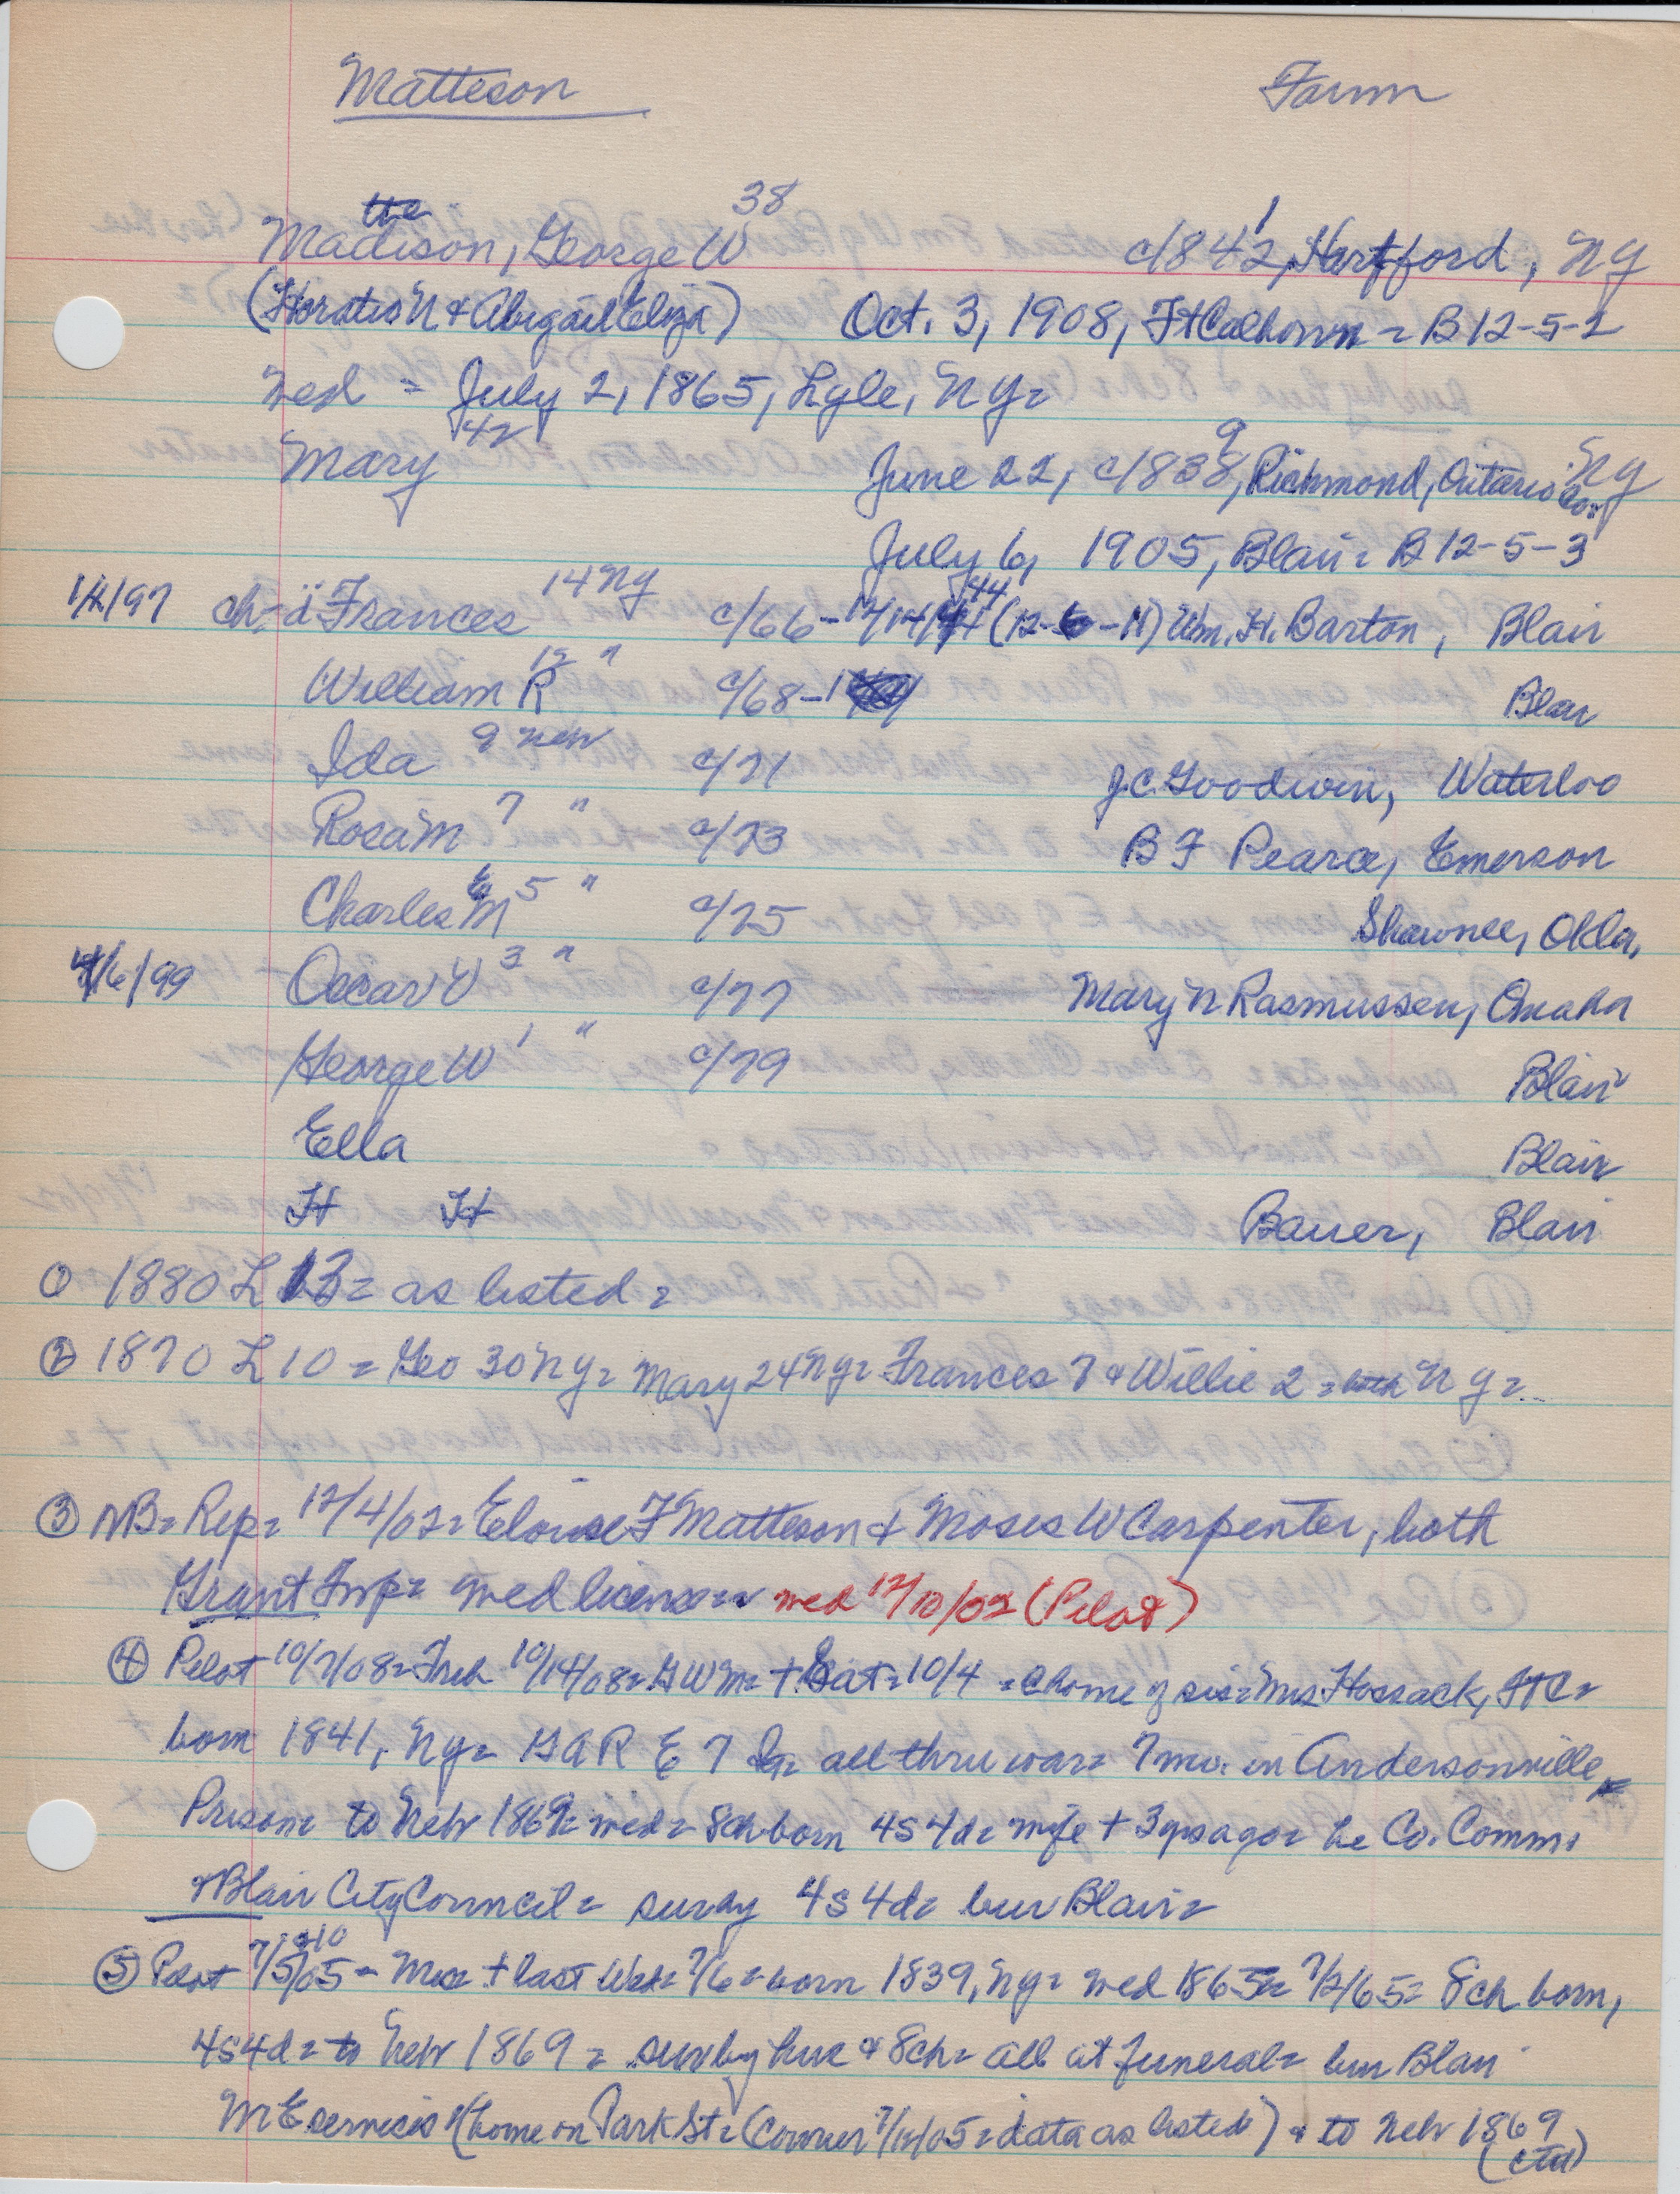 Matteson Farm
tte 38 1
Madison, George W c/842, Hartford, NY
(Horatio N & Abigail Eliza) Oct. 3, 1908, Ft Calhoun = B 12-5-2
med = July 2, 1865, Lyle, NY =
42 9
Mary June 22, c/838, Richmond, Ontario Co. NY
July 6, 1905, Blair = B 12-5-3
1/4/97 ch = Frances 14 NY c/66 - 12/14/44 (12-6-11) Wm. H. Barton, Blair
William R 12 " c/68-1 Blair
Ida 9 neb c/71 J.C. Goodwin, Waterloo
Rosa M 7 " c/73 B F Pearce, Emerson
Charles M E 5 " c/75 Shawnee, Okla.
4/6/99 Oscar V 3 " c/77 Mary N Rasmussen, Omaha
George W 1 " c/79 Blair
Ella Blair
H H Bauer, Blair
① 1880 L 13 = as listed =
② 1870 L 10 = Geo 30 NY = Mary 24 NY = Frances 7 & Willie 2 = both NY =
③ NB = Rep = 12/4/02 = Eloise F Matteson & Moses W Carpenter, both
Grant Twp = med license = med 12/10/02 (Pilot)
④ Pilot 10/7/08 = Trib 10/14/08 = G W M = + Sat = 10/4 = @ home of sis = Mrs Hossack, FtC =
born 1841, NY = GAR E 7 = all thru war = 7 mo. in Andersonville
Prison = to Nebr 1869 = med = 8 ch born 4s 4d = wife + 3 yrs ago = he Co. Comm.
& Blair City Council = surv by 4s 4d = bur Blair =
⑤ Pilot 7/5/05 = Mrs + last Wed = 7/6 = born 1839, NY = med 1865 = 7/2/65 = 8 ch born,
4s 4d = to Nebr 1869 = surv by hus & 8 ch = all at funeral = bur Blair
M E services @ home on Park St = (Courier 7/12/05 = data as listed) = to Nebr 1869
(ctd)